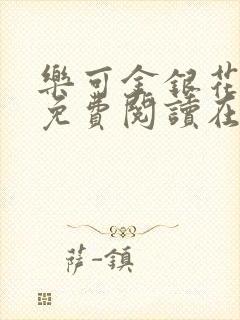 樂可金銀花
免費閱讀在
薩-鎮